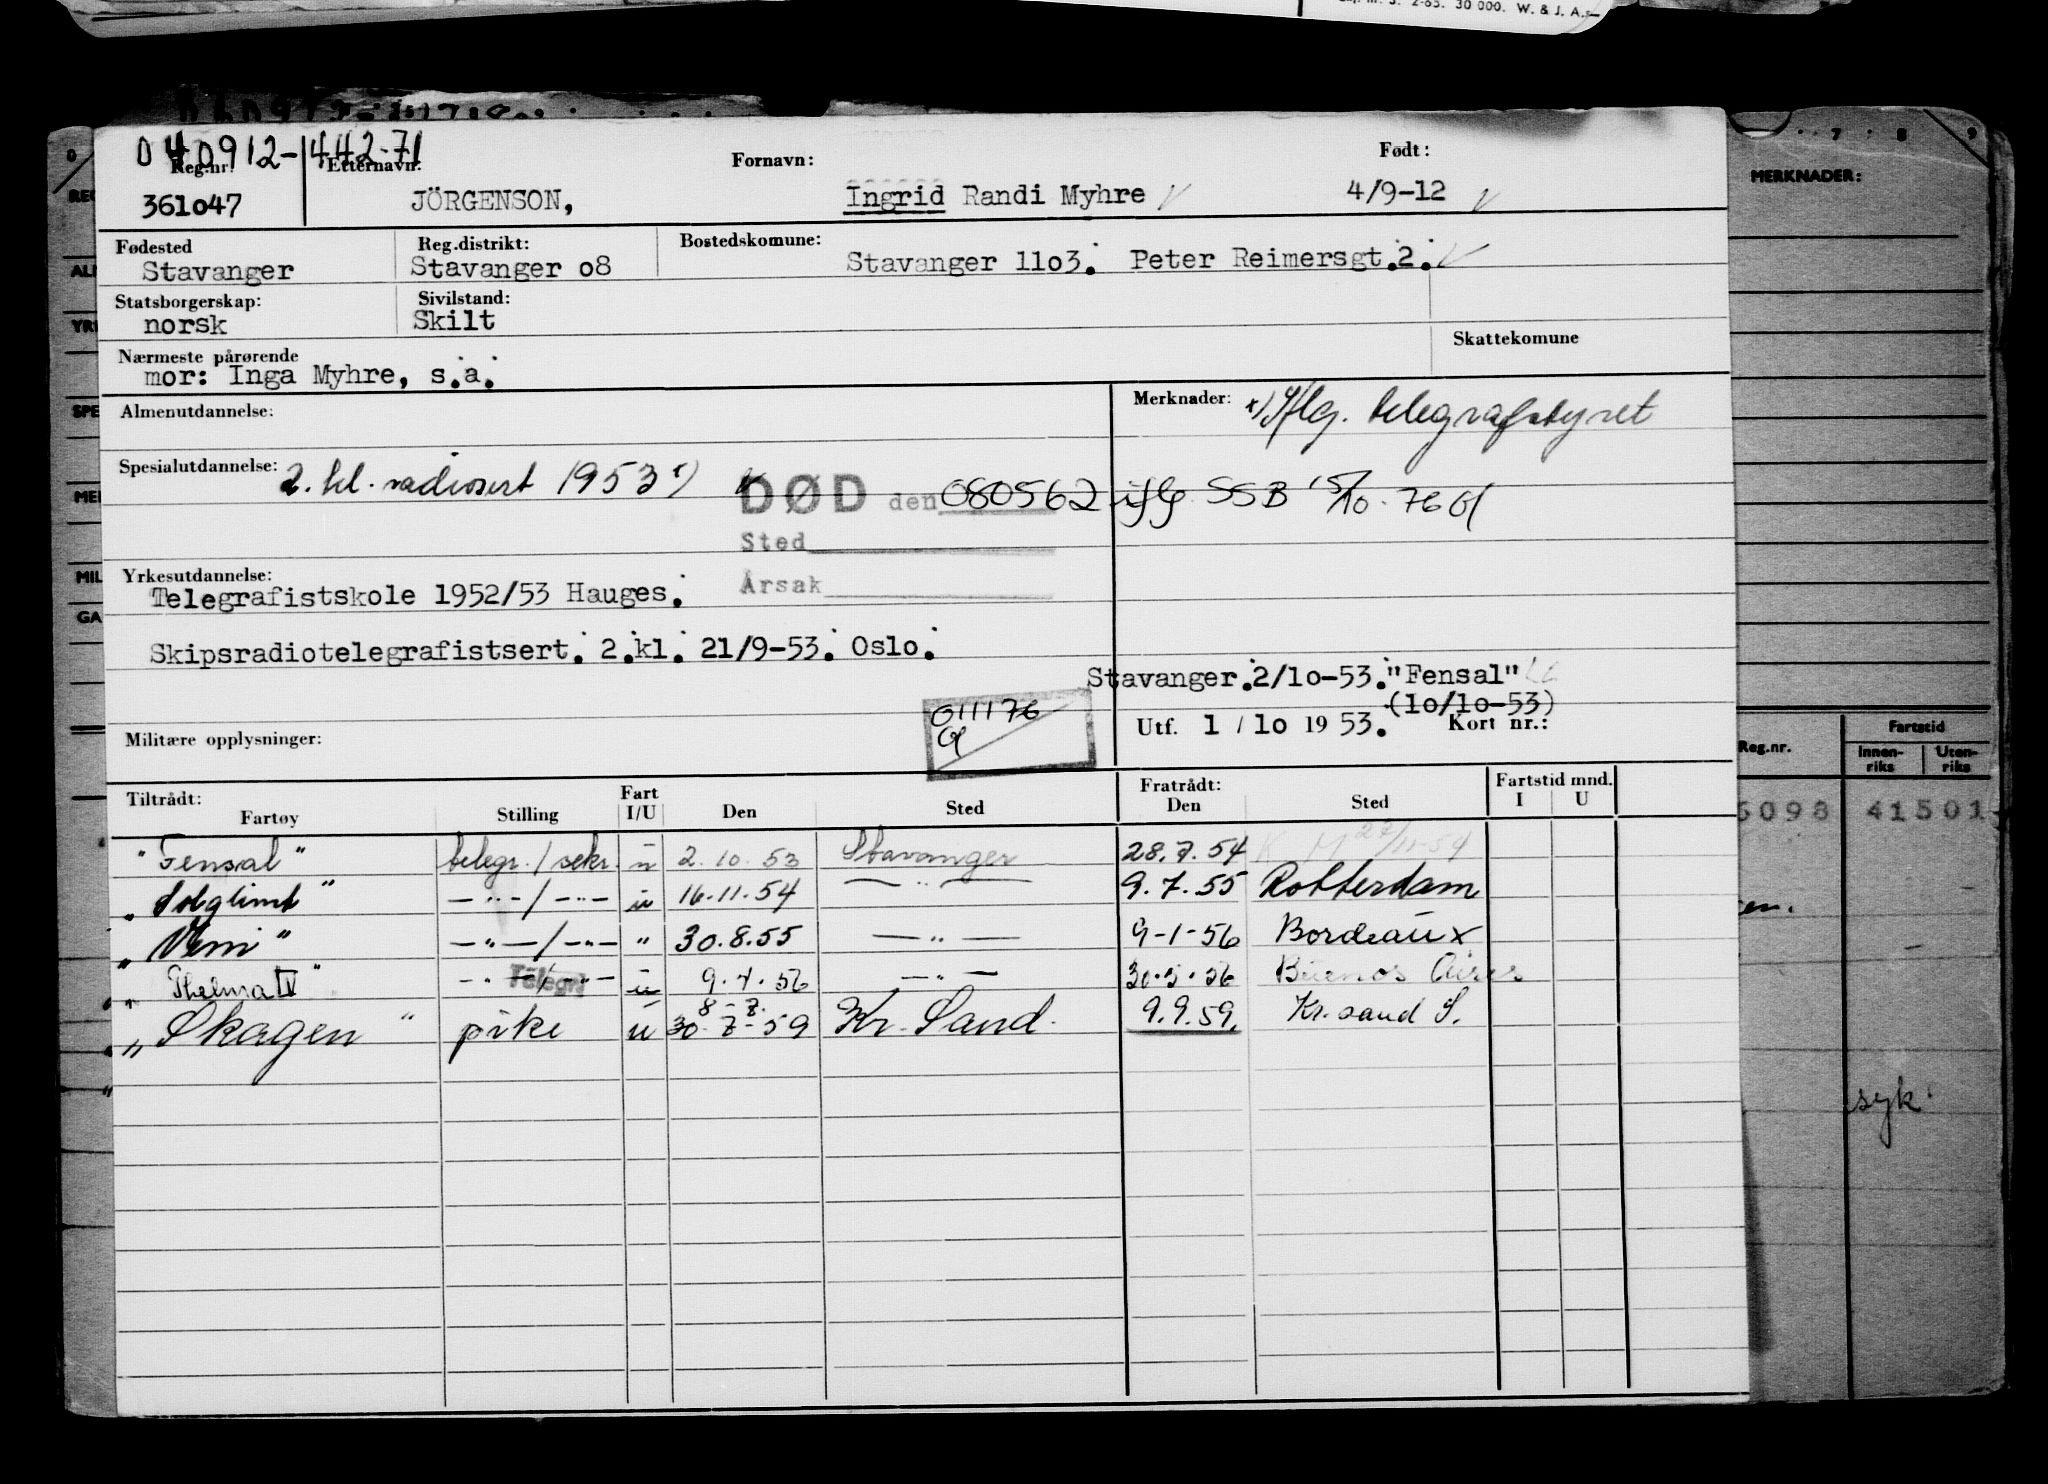 2-65. 30 000. W. & J. A.
040912-44271
Reg.nr. Etternavn: Fornavn: Født:
361o47 JÖRGENSON, Ingrid Randi Myhre 4/9-12
Fødested Reg.distrikt: Bostedskomune:
Stavanger Stavanger o8 Stavanger 11o3. Peter Reimersgt.2.
Statsborgerskap: Sivilstand:
norsk Skilt
Nærmeste pårørende Skattekomune
mor: Inga Myhre, s.a.
Almenutdannelse: Merknader: x) Iflg. telegrafstyret
Spesialutdannelse: 2. kl. radiosert 1953 x)
DØD den 080562 iflg SSB 15/10-76
Sted
Årsak
Yrkesutdannelse:
Telegrafistskole 1952/53 Hauges.
Skipsradiotelegrafistsert. 2.kl. 21/9-53. Oslo.
Stavanger.2/10-53."Fensal"
(10/10-53)
011176
Utf. 1 / 10 19 53. Kort nr.:
Militære opplysninger:
Tiltrådt: Fratrådt: Fartstid mnd.
Fartøy Stilling Fart I/U Den Sted Den Sted I U
"Fensal" telegr./sekr. u 2.10.53 Stavanger 28.7.54
"Solglimt" -"-/-"- u 16.11.54 -"- 9.7.55 Rotterdam
"Veni" -"-/-"- " 30.8.55 -"- 9-1-56 Bordeaux
"Thelma IV" -"- Telegr. u 9.4.56 -"- 30.5.56 Buenos Aires
8-7.
"Skagen" pike u 30-7-59 Kr. Sand. 9.9.59. Kr.sand S.
7 8 9
MERKNADER:
Reg.nr. Fartstid
Innen-riks Uten-riks
6098 41501
en.
syk